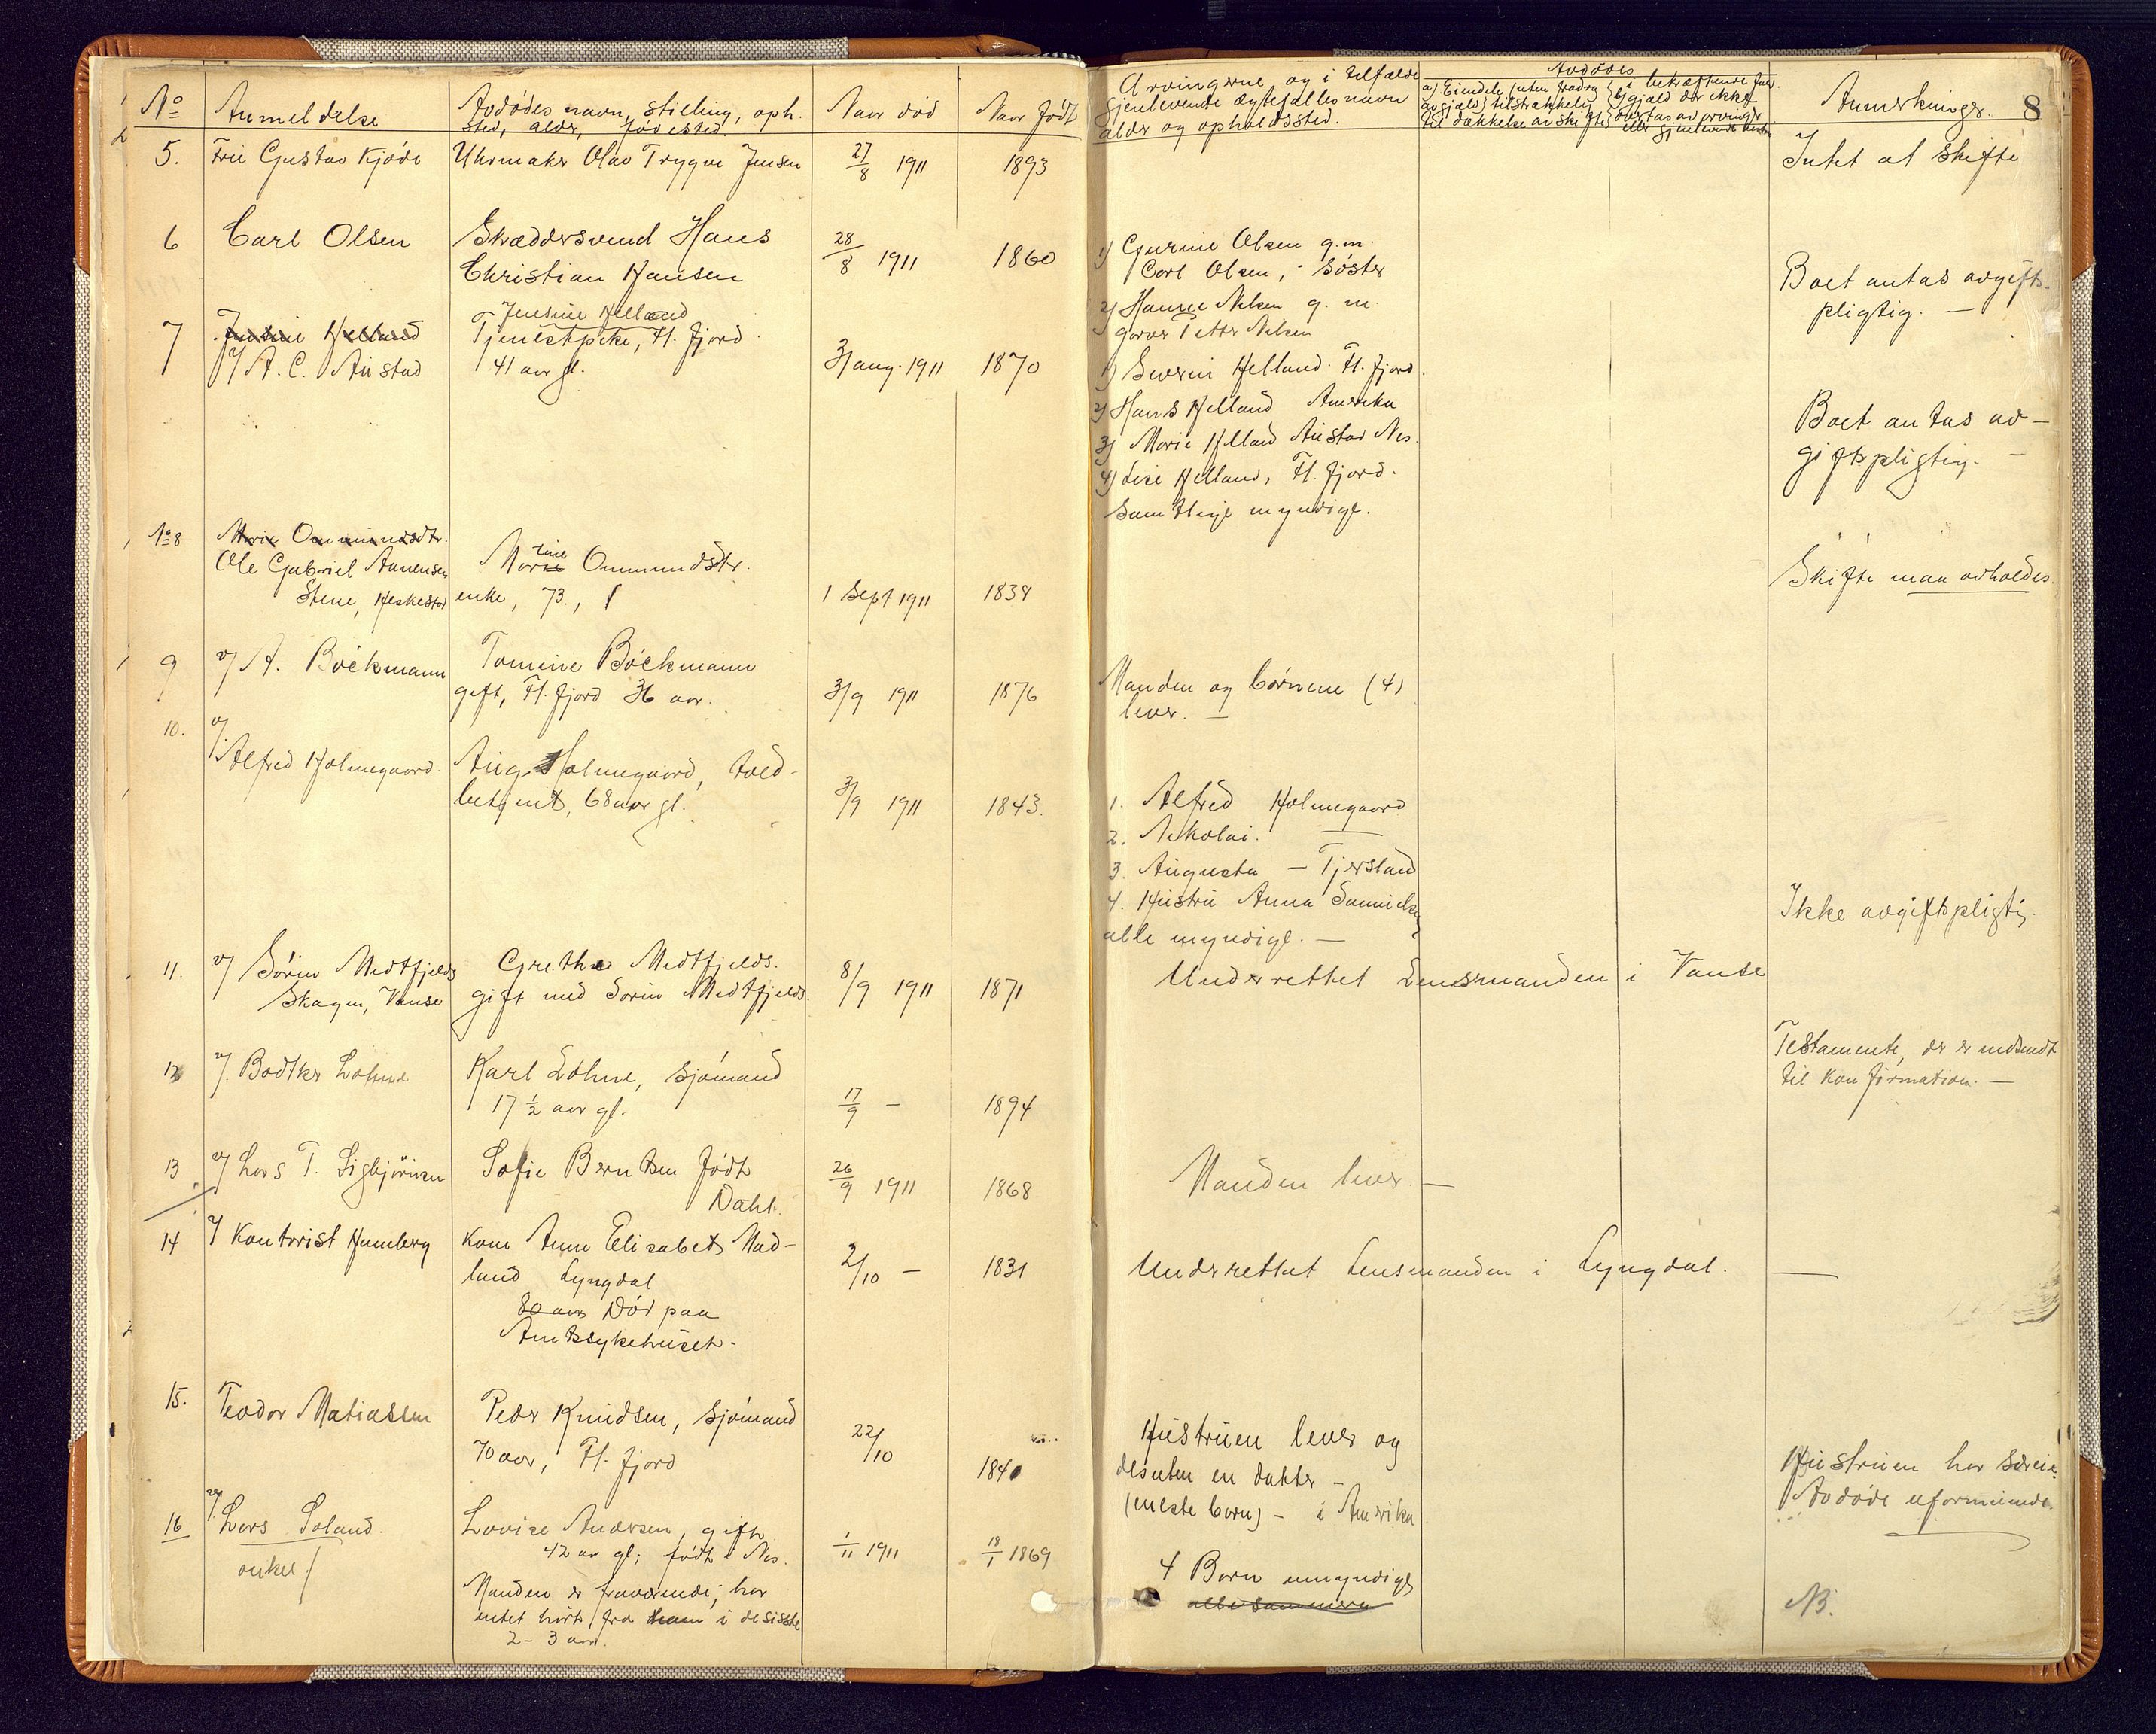 No Anmeldelse Avdødes navn, stilling, oph. sted, alder, fødested. Naar død Naar født
Arvingerne og i tilfælde gjenlevende ægtefælles navn alder og opholdssted.
Avdødes
a) Eiendele (uten fradrag av gjæld) tilstrækkelig til dækkelse av skifte
i bekræftende fald b) gjæld der ikke overtas av arvinger eller gjenlevende
Anmerkninger. 8
5. Frie Gustav Kjöde Uhrmaker Olav Trygve Jensen 27/8 1911 1893
Intet at skifte
6 Carl Olsen Skræddersvend Hans
Christian Hansen 28/8 1911 1860
1) Gurine Olsen g.m.
Carl Olsen, Søster
2) Hanne Nelsen g. m.
garver Petter Nelsen
Boet antas avgifts-
pligtig. —
7 Jensine Helland
v/ A. C. Austad
Jensine Helland
Tjenestpike, Fl. fjord.
41 aar gl. 3 aug. 1911 1870
1) Severin Helland Fl. fjord.
2) Hans Helland Amerika
3) Marie Helland Austad Nes.
4) Lise Helland, Fl. fjord.
Samtlige myndige.
Boet antas av-
giftspligtig. —
No 8 Marie Ommundsdtr.
Ole Gabriel Aanensen
Stene, Heskestad
Martine Ommundsdtr.
enke, 73., 1 Sept 1911 1838
Skifte maa avholdes.
9 v/ A. Böckmann Tomine Böckmann
gift, Fl. fjord 36 aar. 3/9 1911 1876
Manden og børnene (4)
lever. —
10. v/
Alfred Holmegaard Aug. Holmegaard, told-
betjent, 68 aar gl. 3/9 1911 1843.
1. Alfred Holmegaard
2. Nikolai. —
3. Augusta — Tjersland
4. Hustru Anna Samuelsen
alle myndige. —
Ikke avgiftspligtig.
11. v/ Sörin Medtfjelds
Skagen, Vanse
Grethe Medtfjelds.
gift med Sorin Medtfjelds. 8/9 1911 1871
Underrettet Lensmanden i Vanse
12 v/. Bödtker Lohne Karl Lohne, sjømand
17 1/2 aar gl. 17/9 — 1894
Testamente, der er indsendt
til Konfirmation. —
13 v/ Lars T. Sigbjörnsen Sofie Berntsen født
Dahl. 26/9 1911 1868
Manden lever. —
14 v/ Kontorist Humberg Kone Anne Elisabets Nad-
land Lyngdal
80 aar Död paa
Amtssykehuset. 2/10 — 1831
Underrettet Lensmanden i Lyngdal. —
15. Teodor Matiassen Peder Knudsen, sjømand
70 aar, Fl. fjord 22/10 1841
Hustruen lever og
desuten en datter —
(meste barn) — i Amerika.
Hustruen har særeie.
Avdøde uformuende.
16 v/ Lars Soland.
onkel
Lovise Andersen, gift
42 aar gl; født i Nes. 1/11 1911 18/1 1869
Manden er fraværende; har
intet hørt fra ham i de sisste
2 - 3 aar.
4 Barn umyndige
alle sammen
NB.